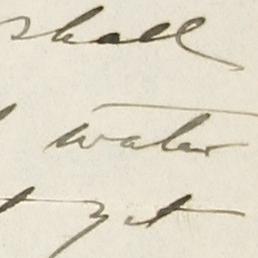 shall
water
yet